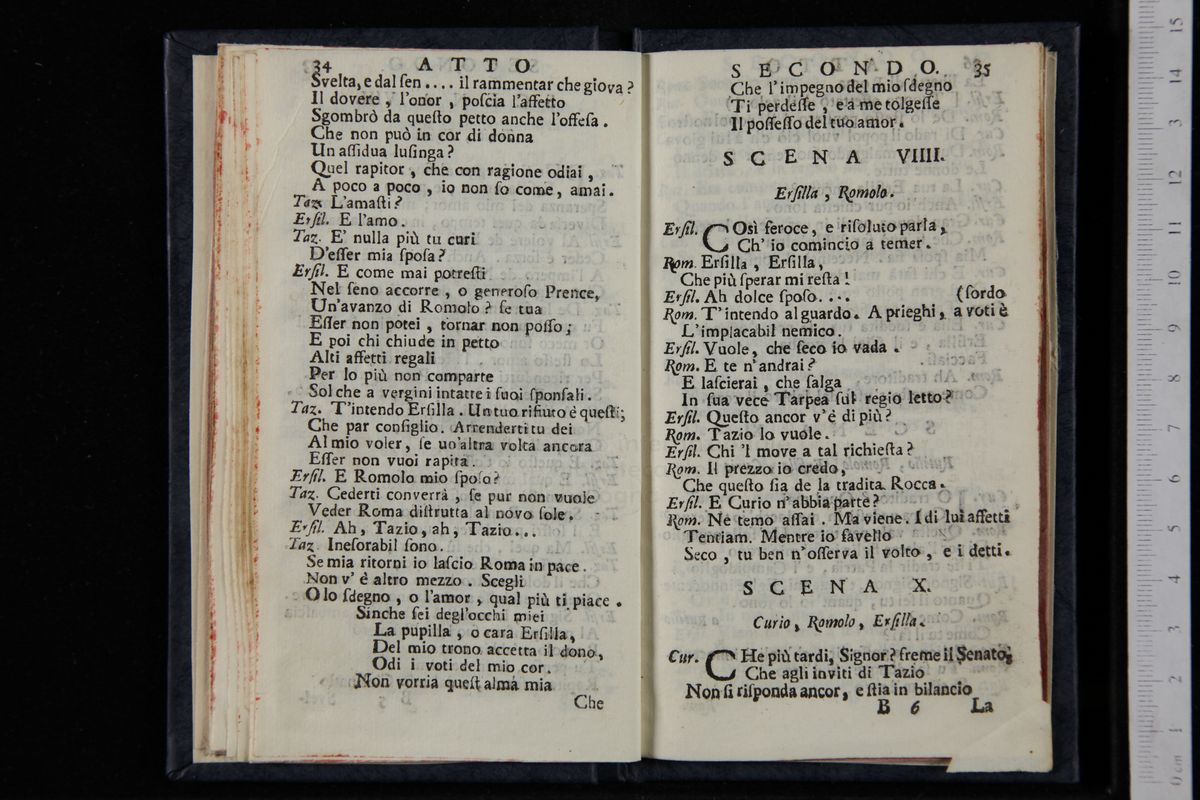 34 ATTO
Svelta, e dal ſen .... il rammentar che giova?
Il dovere, l'onor, poſcia l'affetto
Sgombrò da queſto petto anche l'offeſa.
Che non può in cor di donna
Un aſſidua luſinga?
Quel rapitor, che con ragione odiai,
A poco a poco, io non ſo come, amai.
Taz. L'amaſti?
Erſil. E l'amo.
Taz. E' nulla più tu curi
D'eſſer mia ſpoſa?
Erſil. E come mai potreſti
Nel ſeno accorre, o generoſo Prence,
Un'avanzo di Romolo? ſe tua
Eſſer non potei, tornar non poſſo;
E poi chi chiude in petto
Alti affetti regali
Per lo più non comparte
Sol che a vergini intatte i ſuoi ſponſali.
Taz. T'intendo Erſilla. Un tuo rifiuto è queſti;
Che par conſiglio. Arrenderti tu dei
Al mio voler, ſe un'altra volta ancora
Eſſer non vuoi rapita.
Erſil. E Romolo mio ſpoſo?
Taz. Cederti converrà, ſe pur non vuole
Veder Roma diſtrutta al novo ſole.
Erſil. Ah, Tazio, ah, Tazio...
Taz. Ineſorabil ſono.
Se mia ritorni io laſcio Roma in pace.
Non v' è altro mezzo. Scegli
O lo ſdegno, o l'amor, qual più ti piace.
Sinche ſei degl'occhi miei
La pupilla, o cara Erſilla,
Del mio trono accetta il dono,
Odi i voti del mio cor.
Non vorria queſt alma mia
Che
SECONDO. 35
Che l'impegno del mio ſdegno
Ti perdeſſe, e a me tolgeſſe
Il poſſeſſo del tuo amor.
SCENA VIIII.
Erſilla, Romolo.
Erſil. COsì feroce, e riſoluto parla,
Ch' io comincio a temer.
Rom. Erſilla, Erſilla,
Che più ſperar mi reſta!
Erſil. Ah dolce ſpoſo.... (ſordo
Rom. T'intendo al guardo. A prieghi, a voti è
L'implacabil nemico.
Erſil. Vuole, che ſeco io vada.
Rom. E te n'andrai?
E laſcierai, che ſalga
In ſua vece Tarpea ſul regio letto?
Erſil. Queſto ancor v'è di più?
Rom. Tazio lo vuole.
Erſil. Chi 'l move a tal richieſta?
Rom. Il prezzo io credo,
Che queſto ſia de la tradita Rocca.
Erſil. E Curio n'abbia parte?
Rom. Ne temo aſſai. Ma viene. I di lui affetti
Tentiam. Mentre io favello
Seco, tu ben n'oſſerva il volto, e i detti.
SCENA X.
Curio, Romolo, Erſilla.
Cur. CHe più tardi, Signor? freme il Senato,
Che agli inviti di Tazio
Non ſi riſponda ancor, e ſtia in bilancio
B 6 La